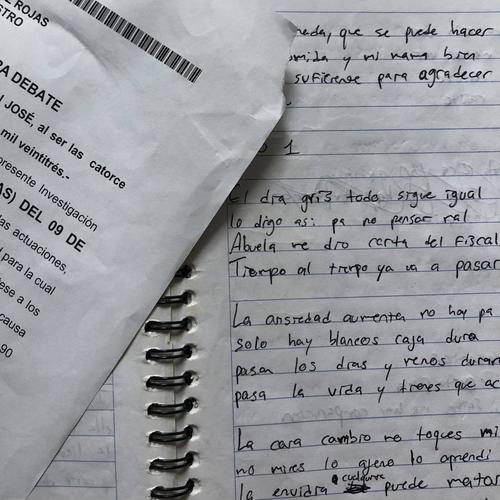 ROJAS
STRO
RA DEBATE
JOSÉ, al ser las catorce
mil veintitrés.-
presente Investigación
AS) DEL 09 DE
las actuaciones,
para la cual
ese a los
causa
90
nada, que se puede hacer
omida y mi mama bien
suficiente para agradecer
1
El dia gris todo sigue igual
lo digo asi pa no pensar mal
Abuela me dio carta del fiscal
Tiempo al tiempo ya va a pasar
La ansiedad aumenta no hay pa
solo hay blancos caja dura
pasan los dias y menos duran
pasa la vida y tienes que ac
La cara cambio no toques mi
no mires lo ajeno lo aprendi
la envidia cualquiera puede matar